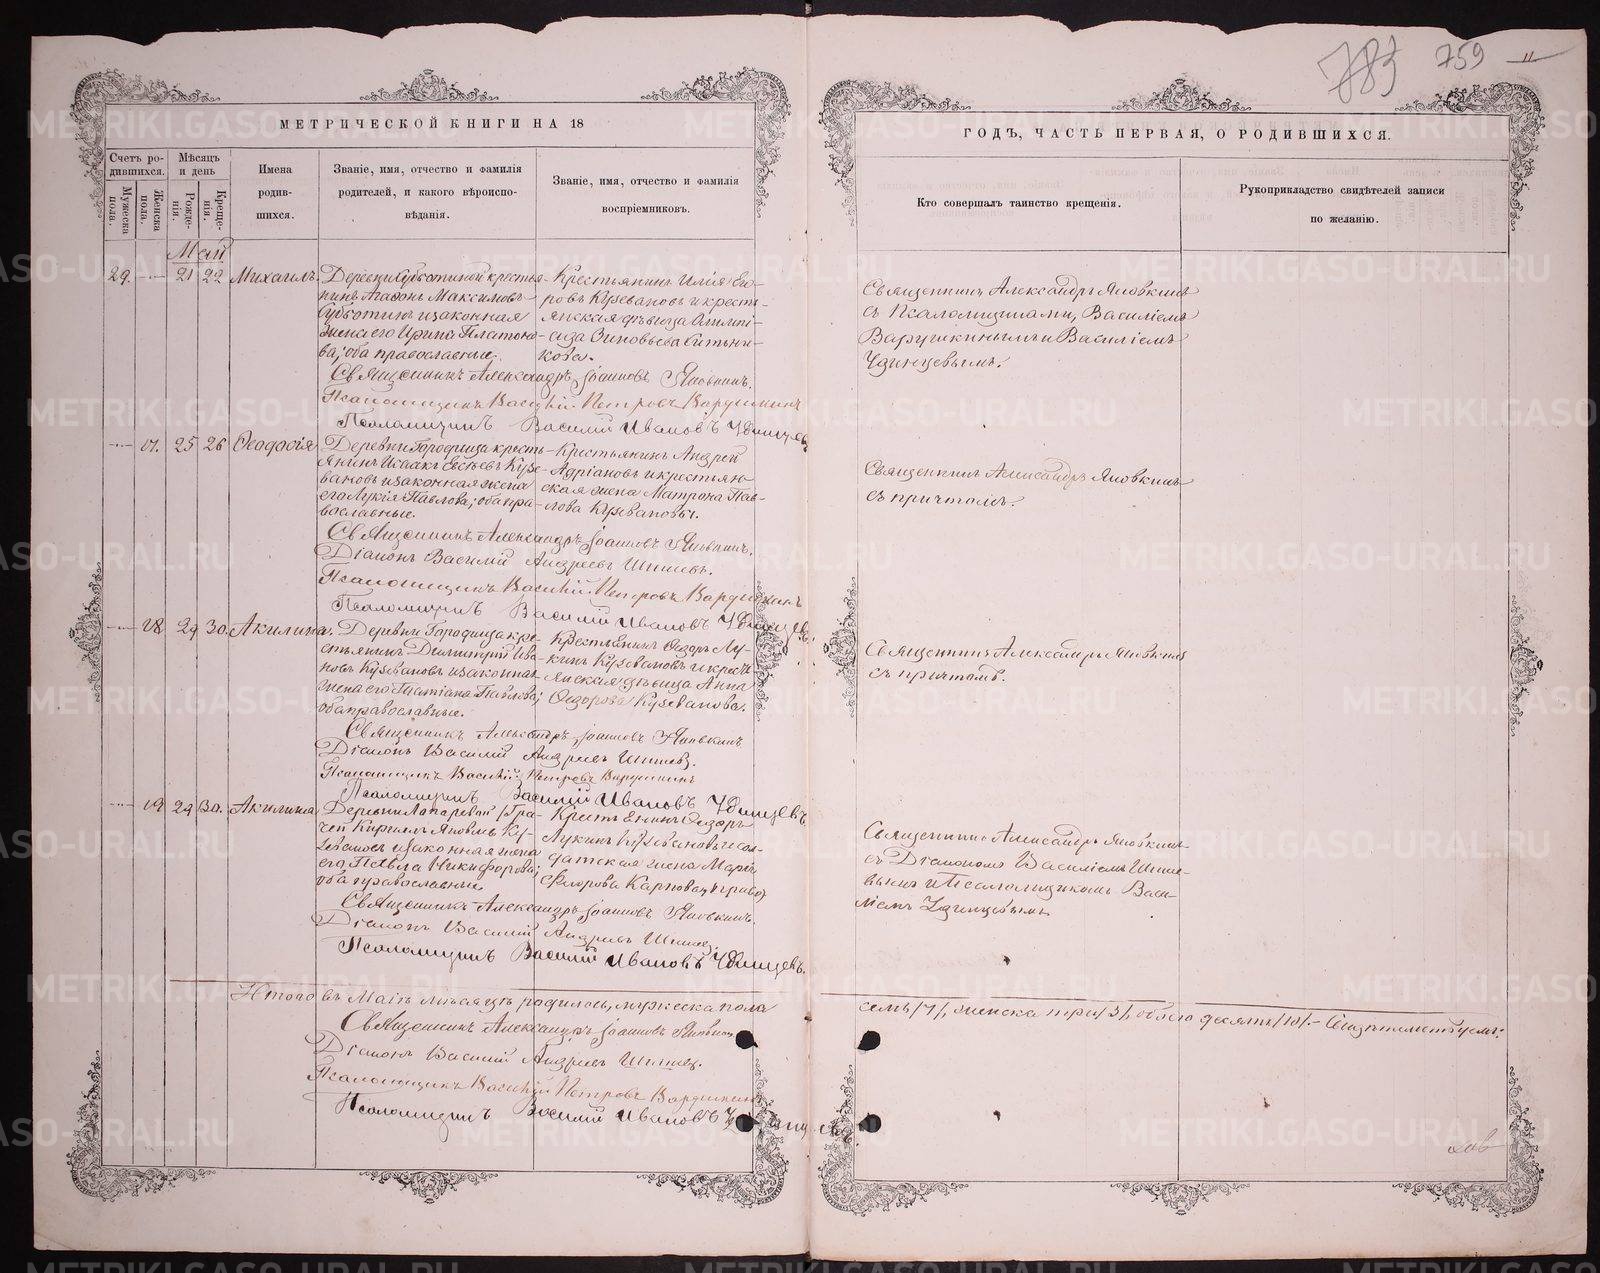 783 759 11
МЕТРИЧЕСКОЙ КНИГИ НА 18
Счетъ ро-
дившихся.
Мужеска
пола.
Женска
пола.
Мѣсяцъ
и день
Рожде-
нія.
Креще-
нія.
Имена
родив-
шихся.
Званіе, имя, отчество и фамилія
родителей, и какого вѣроиспо-
вѣданія.
Званіе, имя, отчество и фамилія
воспріемниковъ.
ГОДЪ, ЧАСТЬ ПЕРВАЯ, О РОДИВШИХСЯ.
Кто совершалъ таинство крещенія.
Рукоприкладство свидѣтелей записи
по желанію.
Май
29. 21 22 Михаилъ.
Деревни Субботиной крестья-
нинъ Агафонъ Максимовъ
Субботинъ и законная
жена его Ирина Платоно-
ва; оба православные.
Крестьянинъ Илія Его-
ровъ Кузевановъ и кресть-
янская дѣвица Олимпі-
ада Зиновьева Ситьни-
кова.
Священникъ Александръ Яновкинъ
съ Псаломщиками, Василіемъ
Варушкинымъ и Василіемъ
Удинцевымъ.
Священникъ Александръ Іоанновъ Яновкинъ.
Псаломщикъ Василій Петровъ Варушкинъ
Псаломщикъ Василій Ивановъ Удинцевъ
17. 25 26 Феодосія
Деревни Городища кресть-
янинъ Исаакъ Евсѣевъ Кузе-
вановъ и законная жена
его Лукія Павлова; оба пра-
вославные.
Крестьянинъ Андрей
Адріановъ и крестьян-
ская жена Матрона Пав-
лова Кузевановы.
Священникъ Александръ Яновкинъ
съ причтомъ.
Священникъ Александръ Іоанновъ Яновкинъ.
Діаконъ Василій Андреевъ Шишевъ.
Псаломщикъ Василій Петровъ Варушкинъ
Псаломщикъ Василій Ивановъ Удинцевъ.
18 29 30. Акилина.
Деревни Городища кре-
стьянинъ Димитрій Ива-
новъ Кузевановъ и законная
жена его Татіана Павлова;
оба православные.
Крестьянинъ Ѳедоръ Лу-
кинъ Кузевановъ и крест-
янская дѣвица Анна
Ѳедорова Кузеванова.
Священникъ Александръ Яновкинъ
съ причтомъ.
Священникъ Александръ Іоанновъ Яновкинъ
Діаконъ Василій Андреевъ Шишевъ.
Псаломщикъ Василій Петровъ Варушкинъ
Псаломщикъ Василій Ивановъ Удинцевъ.
19 29 30. Акилина
Деревни Лапаревой
Кириллъ Яковлевъ
и законная жена
его Павла Никифорова;
оба православные
Крестьянинъ Ѳедоръ
Лукинъ Кузевановъ и сол-
датская жена Марія
Флорова Карпова
Священникъ Александръ Яновкинъ
съ Діакономъ Василіемъ Шише-
вымъ и Псаломщикомъ Васи-
ліемъ Удинцевымъ
Священникъ Александръ Іоанновъ Яновкинъ.
Діаконъ Василій Андреевъ Шишевъ.
Псаломщикъ Василій Ивановъ Удинцевъ.
Итого въ Маіѣ мѣсяцѣ родилось, мужеска пола
семь /7/, женска три /3/, обоего десять /10/. Свидѣтельствуемъ:
Священникъ Александръ Іоанновъ Яновкинъ
Діаконъ Василій Андреевъ Шишевъ.
Псаломщикъ Василій Петровъ Варушкинъ
Псаломщикъ Василій Ивановъ Удинцевъ.
METRIKI.GASO-URAL.RU